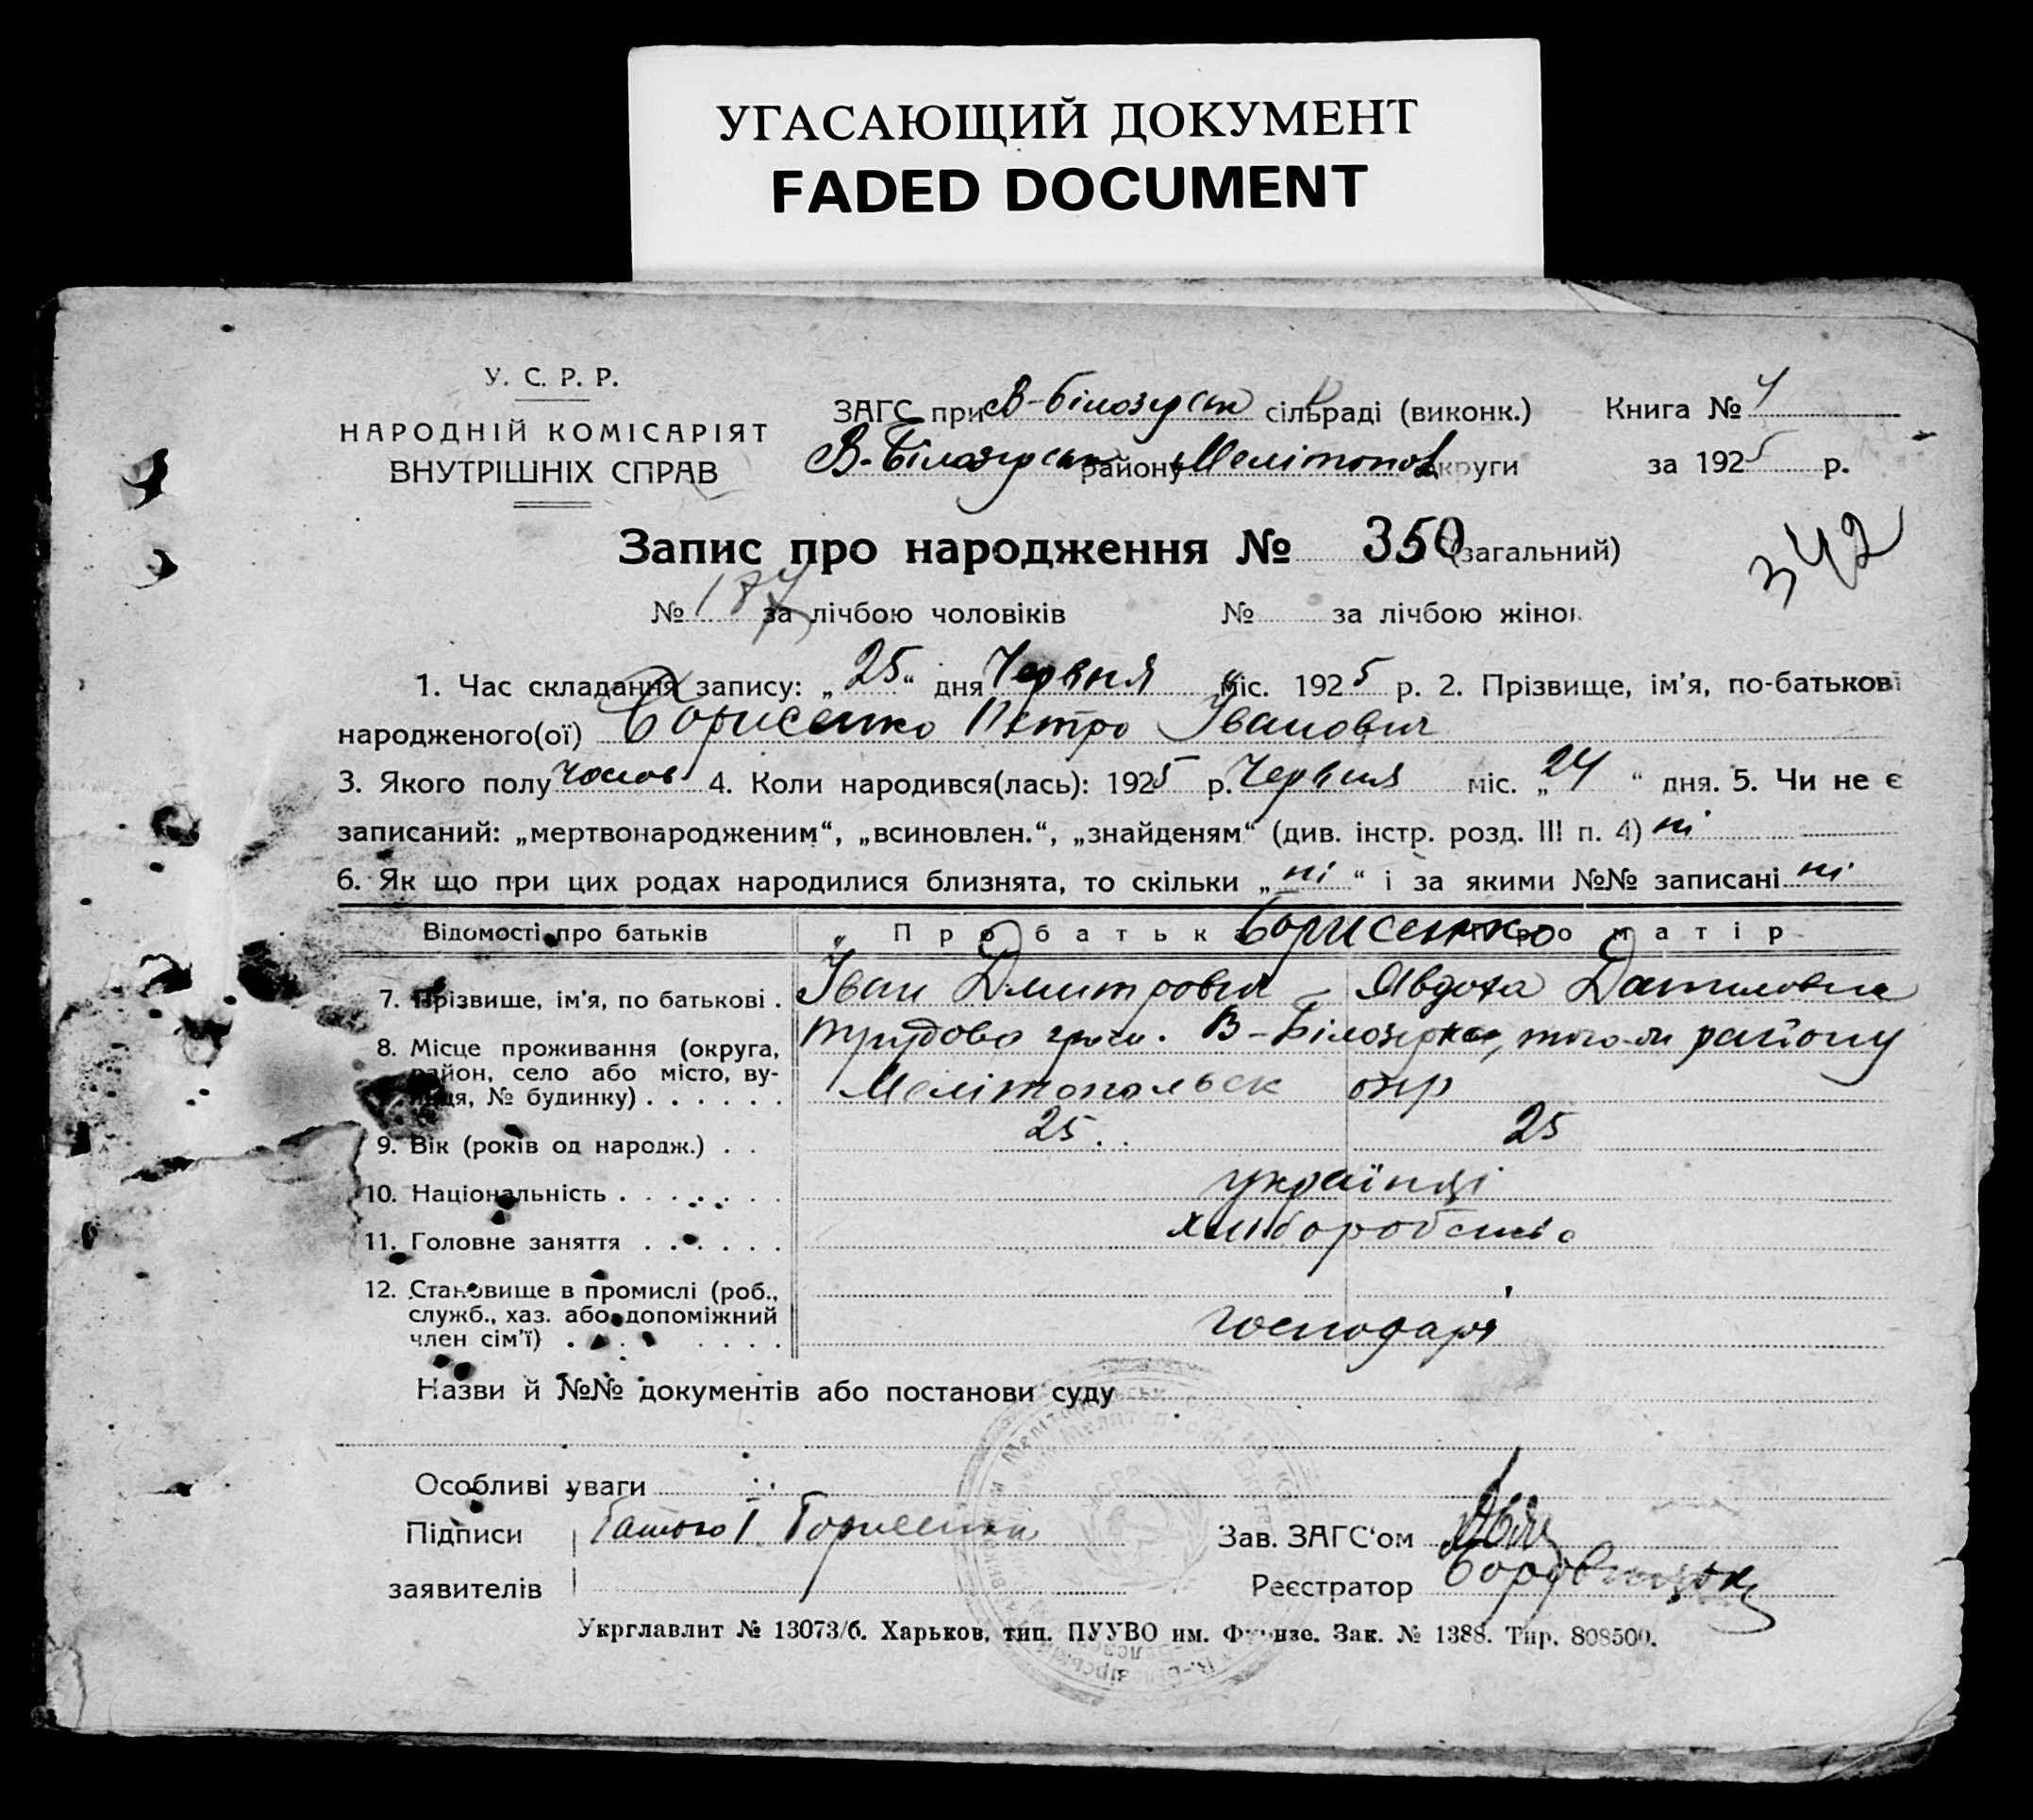 УГАСАЮЩИЙ ДОКУМЕНТ
FADED DOCUMENT
У. С. Р. Р.
НАРОДНІЙ КОМІСАРІЯТ
ВНУТРІШНІХ СПРАВ
ЗАГС при В-Білозерск сільраді (виконк.)
В-Білозерськ району Мелітопов округи
Книга № 4
за 1925 р.
Запис про народження № 350 (загальний)
342
№ 187 за лічбою чоловіків № за лічбою жінок
1. Час складання запису: „25“ дня Червня міс. 1925 р. 2. Прізвище, ім’я, по-батькові
народженого(ої) Борисенко Петро Іванович
3. Якого полу чолов 4. Коли народився(лась): 1925 р. Червня міс. „24“ дня. 5. Чи не є
записаний: „мертвонародженим“, „всиновлен.“, „знайденям“ (див. інстр. розд. III п. 4) ні
6. Як що при цих родах народилися близнята, то скільки „ні“ і за якими №№ записані ні
Відомості про батьків Про батька Борисенко Про матір
7. Прізвище, ім’я, по батькові . Іван Дмитрович – Явдоха Даниловна
8. Місце проживання (округа, район, село або місто, вулиця, № будинку) . . . . . .
В-Білозерка, того-ж району
Мелітопольск окр
9. Вік (років од народж.) . . 25. 25
10. Національність . . . . . . . українці
11. Головне заняття . . . . . . хліборобство
12. Становище в промислі (роб.,
служб., хаз. або допоміжний
член сім’ї) . . . . . . . господарі
Назви й №№ документів або постанови суду
Особливі уваги
Підписи І. Борисенко
заявителів
Зав. ЗАГС‘ом
Реєстратор
Укрглавлит № 13073/б. Харьков, тип. ПУУВО им. Фрунзе. Зак. № 1388. Тир. 808500.